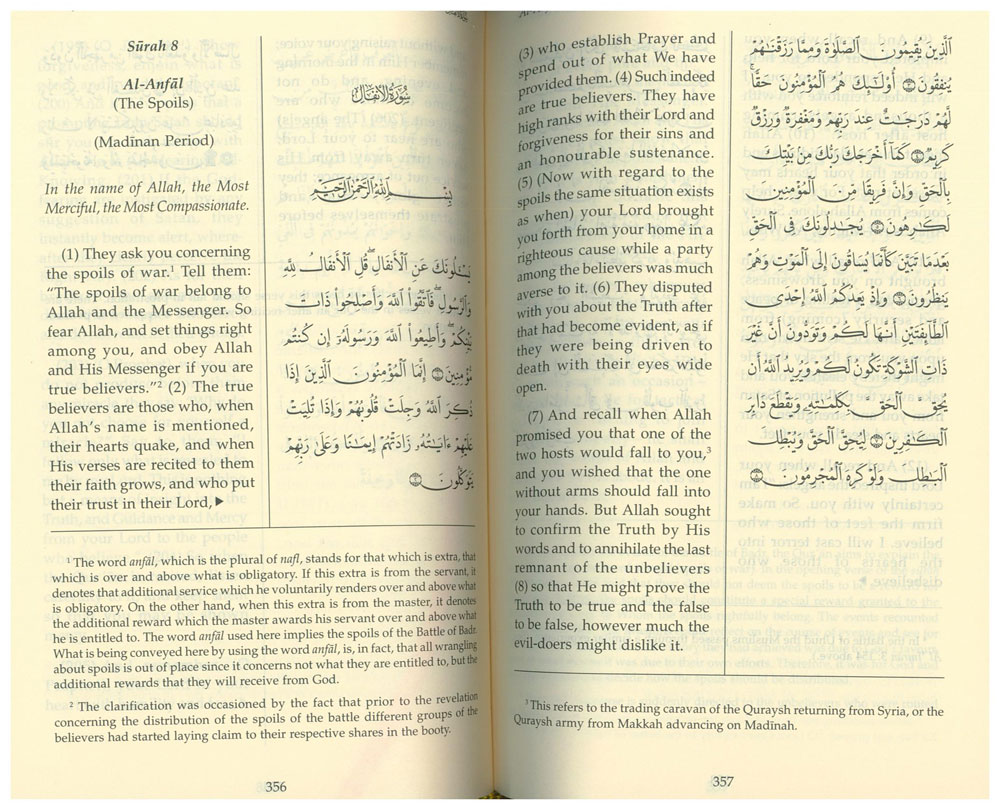 Sūrah 8
Al-Anfāl
(The Spoils)
(Madīnan Period)
In the name of Allah, the Most
Merciful, the Most Compassionate.
(1) They ask you concerning
the spoils of war.¹ Tell them:
“The spoils of war belong to
Allah and the Messenger. So
fear Allah, and set things right
among you, and obey Allah
and His Messenger if you are
true believers.”² (2) The true
believers are those who, when
Allah’s name is mentioned,
their hearts quake, and when
His verses are recited to them
their faith grows, and who put
their trust in their Lord,▶
سُورَةُ الأَنفَالِ
بِسْمِ اللَّهِ الرَّحْمَٰنِ الرَّحِيمِ
يَسْـَٔلُونَكَ عَنِ ٱلْأَنفَالِ قُلِ ٱلْأَنفَالُ لِلَّهِ
وَٱلرَّسُولِ فَٱتَّقُوا۟ ٱللَّهَ وَأَصْلِحُوا۟ ذَاتَ
بَيْنِكُمْ وَأَطِيعُوا۟ ٱللَّهَ وَرَسُولَهُۥٓ إِن كُنتُم
مُّؤْمِنِينَ ۝ إِنَّمَا ٱلْمُؤْمِنُونَ ٱلَّذِينَ إِذَا
ذُكِرَ ٱللَّهُ وَجِلَتْ قُلُوبُهُمْ وَإِذَا تُلِيَتْ
عَلَيْهِمْ ءَايَـٰتُهُۥ زَادَتْهُمْ إِيمَـٰنًا وَعَلَىٰ رَبِّهِمْ
يَتَوَكَّلُونَ ۝
¹ The word anfāl, which is the plural of nafl, stands for that which is extra, that
which is over and above what is obligatory. If this extra is from the servant, it
denotes that additional service which he voluntarily renders over and above what
is obligatory. On the other hand, when this extra is from the master, it denotes
the additional reward which the master awards his servant over and above what
he is entitled to. The word anfāl used here implies the spoils of the Battle of Badr.
What is being conveyed here by using the word anfāl, is, in fact, that all wrangling
about spoils is out of place since it concerns not what they are entitled to, but the
additional rewards that they will receive from God.
² The clarification was occasioned by the fact that prior to the revelation
concerning the distribution of the spoils of the battle different groups of the
believers had started laying claim to their respective shares in the booty.
356
(3) who establish Prayer and
spend out of what We have
provided them. (4) Such indeed
are true believers. They have
high ranks with their Lord and
forgiveness for their sins and
an honourable sustenance.
(5) (Now with regard to the
spoils the same situation exists
as when) your Lord brought
you forth from your home in a
righteous cause while a party
among the believers was much
averse to it. (6) They disputed
with you about the Truth after
that had become evident, as if
they were being driven to
death with their eyes wide
open.
(7) And recall when Allah
promised you that one of the
two hosts would fall to you,³
and you wished that the one
without arms should fall into
your hands. But Allah sought
to confirm the Truth by His
words and to annihilate the last
remnant of the unbelievers
(8) so that He might prove the
Truth to be true and the false
to be false, however much the
evil-doers might dislike it.
ٱلَّذِينَ يُقِيمُونَ ٱلصَّلَوٰةَ وَمِمَّا رَزَقْنَـٰهُمْ
يُنفِقُونَ ۝ أُو۟لَـٰٓئِكَ هُمُ ٱلْمُؤْمِنُونَ حَقًّا
لَّهُمْ دَرَجَـٰتٌ عِندَ رَبِّهِمْ وَمَغْفِرَةٌ وَرِزْقٌ
كَرِيمٌ ۝ كَمَآ أَخْرَجَكَ رَبُّكَ مِنۢ بَيْتِكَ
بِٱلْحَقِّ وَإِنَّ فَرِيقًا مِّنَ ٱلْمُؤْمِنِينَ
لَكَـٰرِهُونَ ۝ يُجَـٰدِلُونَكَ فِى ٱلْحَقِّ
بَعْدَمَا تَبَيَّنَ كَأَنَّمَا يُسَاقُونَ إِلَى ٱلْمَوْتِ وَهُمْ
يَنظُرُونَ ۝ وَإِذْ يَعِدُكُمُ ٱللَّهُ إِحْدَى
ٱلطَّآئِفَتَيْنِ أَنَّهَا لَكُمْ وَتَوَدُّونَ أَنَّ غَيْرَ
ذَاتِ ٱلشَّوْكَةِ تَكُونُ لَكُمْ وَيُرِيدُ ٱللَّهُ أَن
يُحِقَّ ٱلْحَقَّ بِكَلِمَـٰتِهِۦ وَيَقْطَعَ دَابِرَ
ٱلْكَـٰفِرِينَ ۝ لِيُحِقَّ ٱلْحَقَّ وَيُبْطِلَ
ٱلْبَـٰطِلَ وَلَوْ كَرِهَ ٱلْمُجْرِمُونَ ۝
³ This refers to the trading caravan of the Quraysh returning from Syria, or the
Quraysh army from Makkah advancing on Madīnah.
357